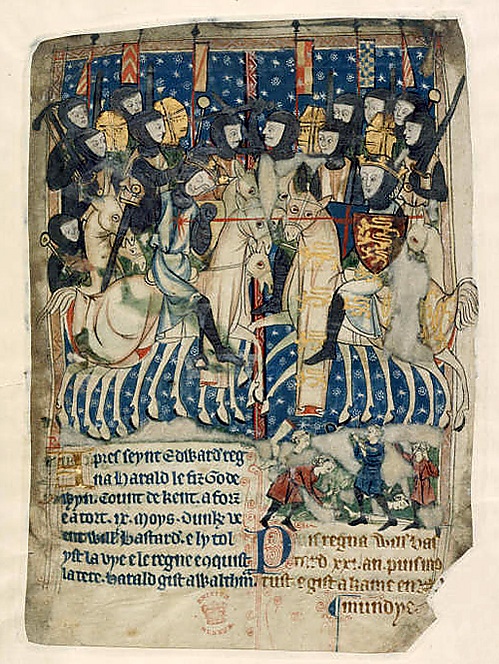 pres seynt Edward reg
na Harald le fiz Gode
Wyn. Count de kent. a forz
e a tort. ix. moys. dunk ve
ent will bastard. e ly tol
yst la vye e le regne en quist
la tere. harald gist a Waltham
Puis regna Will bas
tard. xxi. an. puis
e gist a kame en
mundye
BRITISH
MUSEUM